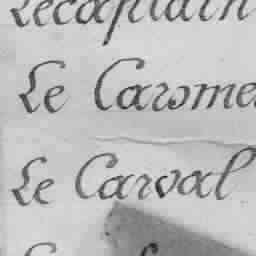 Lecaplain
Le Carome
Le Carval